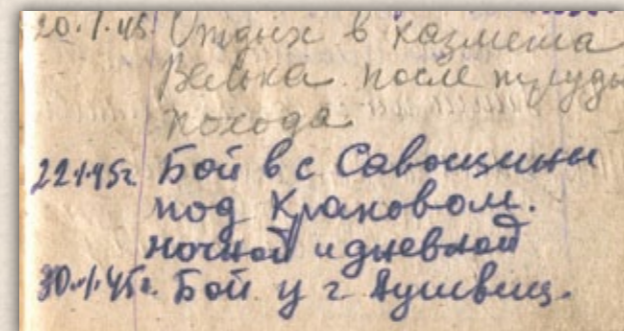 20.1.45. Отдых в казмежа
Велька после труды
похода
22.1.45г. Бой в с Савощины
под Краковом.
ночной и дневной
30.1.45г. Бой у г Аушвиц.